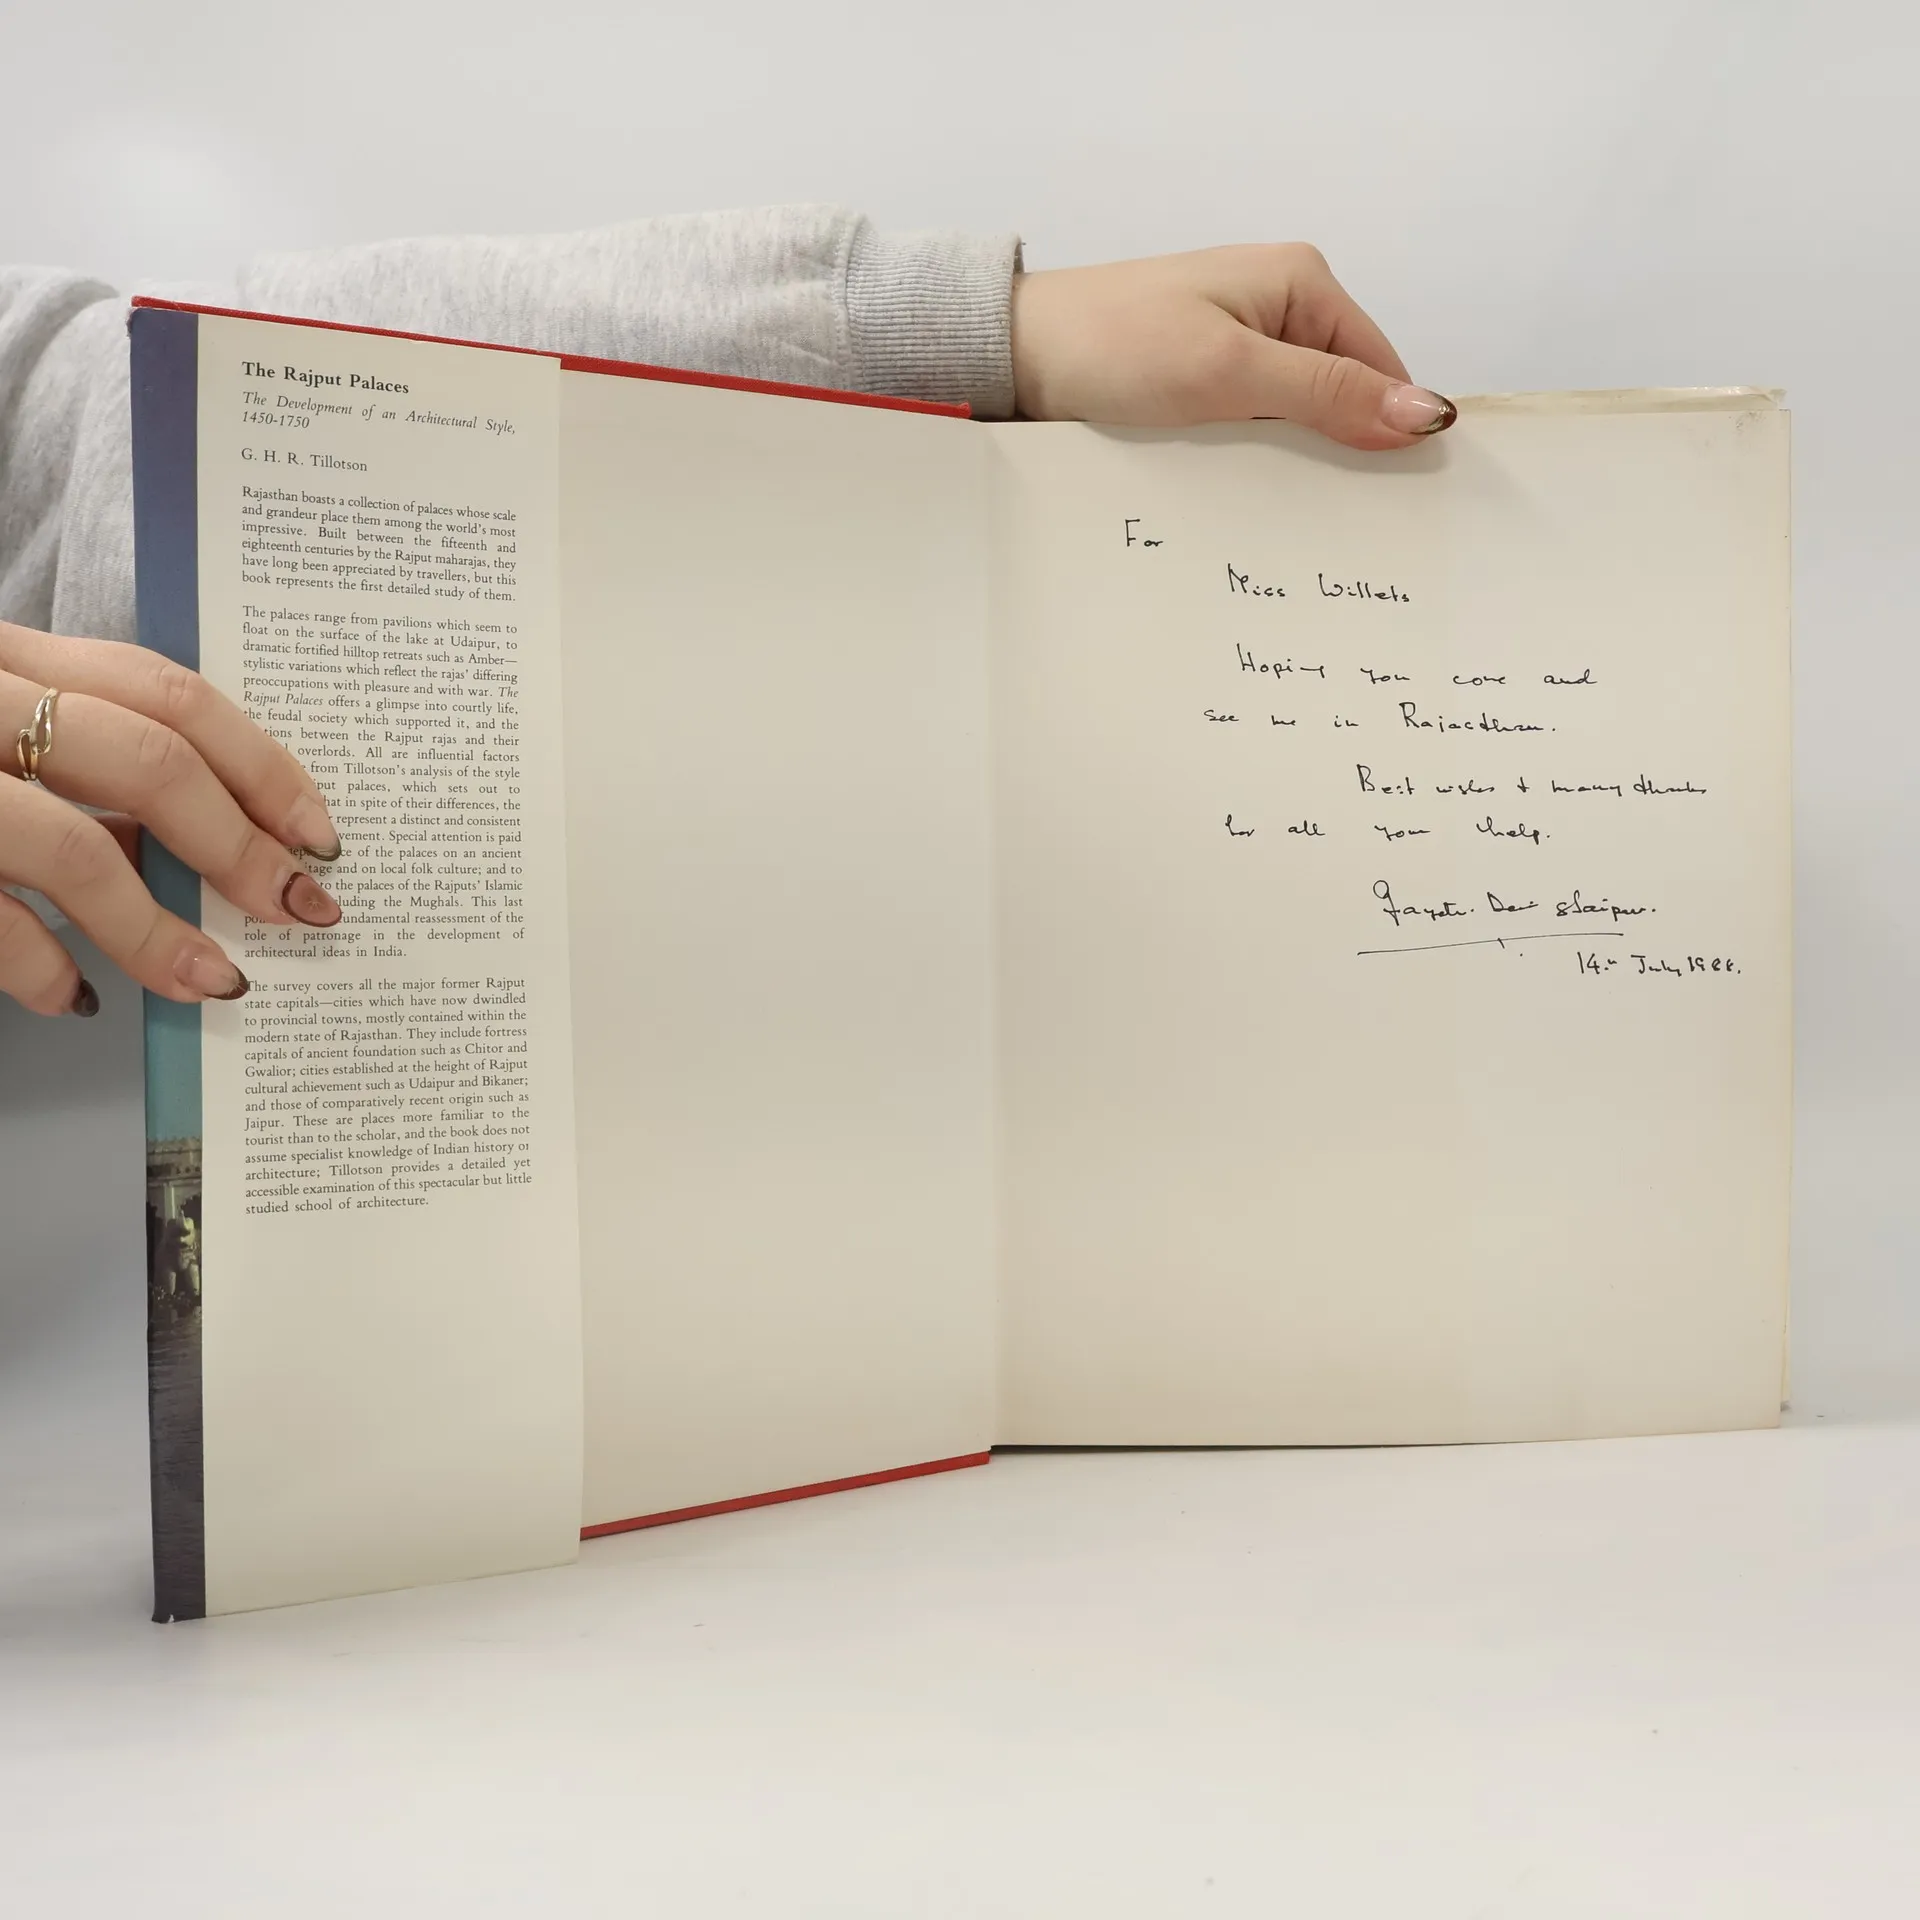 The Rajput Palaces
The Development of an Architectural Style,
1450-1750
G. H. R. Tillotson
Rajasthan boasts a collection of palaces whose scale
and grandeur place them among the world's most
impressive. Built between the fifteenth and
eighteenth centuries by the Rajput maharajas, they
have long been appreciated by travellers, but this
book represents the first detailed study of them.
The palaces range from pavilions which seem to
float on the surface of the lake at Udaipur, to
dramatic fortified hilltop retreats such as Amber—
stylistic variations which reflect the rajas' differing
preoccupations with pleasure and with war. The
Rajput Palaces offers a glimpse into courtly life,
the feudal society which supported it, and the
between the Rajput rajas and their
overlords. All are influential factors
from Tillotson's analysis of the style
palaces, which sets out to
that in spite of their differences, the
represent a distinct and consistent
Special attention is paid
of the palaces on an ancient
and on local folk culture; and to
to the palaces of the Rajputs' Islamic
the Mughals. This last
fundamental reassessment of the
role of patronage in the development of
architectural ideas in India.
The survey covers all the major former Rajput
state capitals—cities which have now dwindled
to provincial towns, mostly contained within the
modern state of Rajasthan. They include fortress
capitals of ancient foundation such as Chitor and
Gwalior; cities established at the height of Rajput
cultural achievement such as Udaipur and Bikaner;
and those of comparatively recent origin such as
Jaipur. These are places more familiar to the
tourist than to the scholar, and the book does not
assume specialist knowledge of Indian history or
architecture; Tillotson provides a detailed yet
accessible examination of this spectacular but little
studied school of architecture.
For
Miss Willets
Hoping you come and
see me in Rajasthan.
Best wishes & many thanks
for all your help.
Gayatri Devi of Jaipur.
14th July 1988.